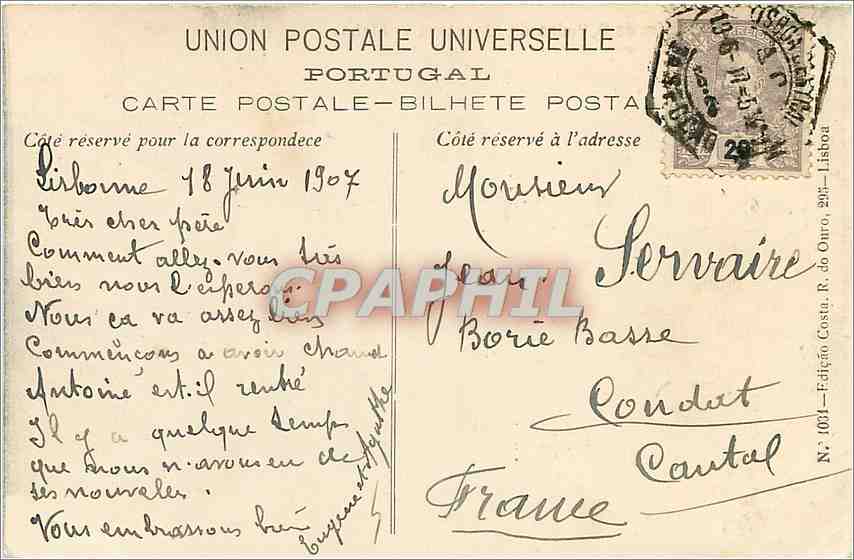 UNION POSTALE UNIVERSELLE
PORTUGAL
CARTE POSTALE—BILHETE POSTAL
Côté réservé pour la correspondece
Lisbonne 18 Juin 1907
très cher père
Comment allez-vous très
bien nous l'espérons.
Nous ça va assez bien
Commençons a avoir chaud
Antoine est-il rentré
Il y a quelque temps
que nous n'avons eu de
ses nouvelles.
Vous embrassons bien
Eugène et Agathe
Côté réservé à l'adresse
Monsieur
Jean Servaire
Borie Basse
Condat
Cantal
France
20
N.º 1031—Edição Costa, R. do Ouro, 295—Lisboa
CPAPHIL